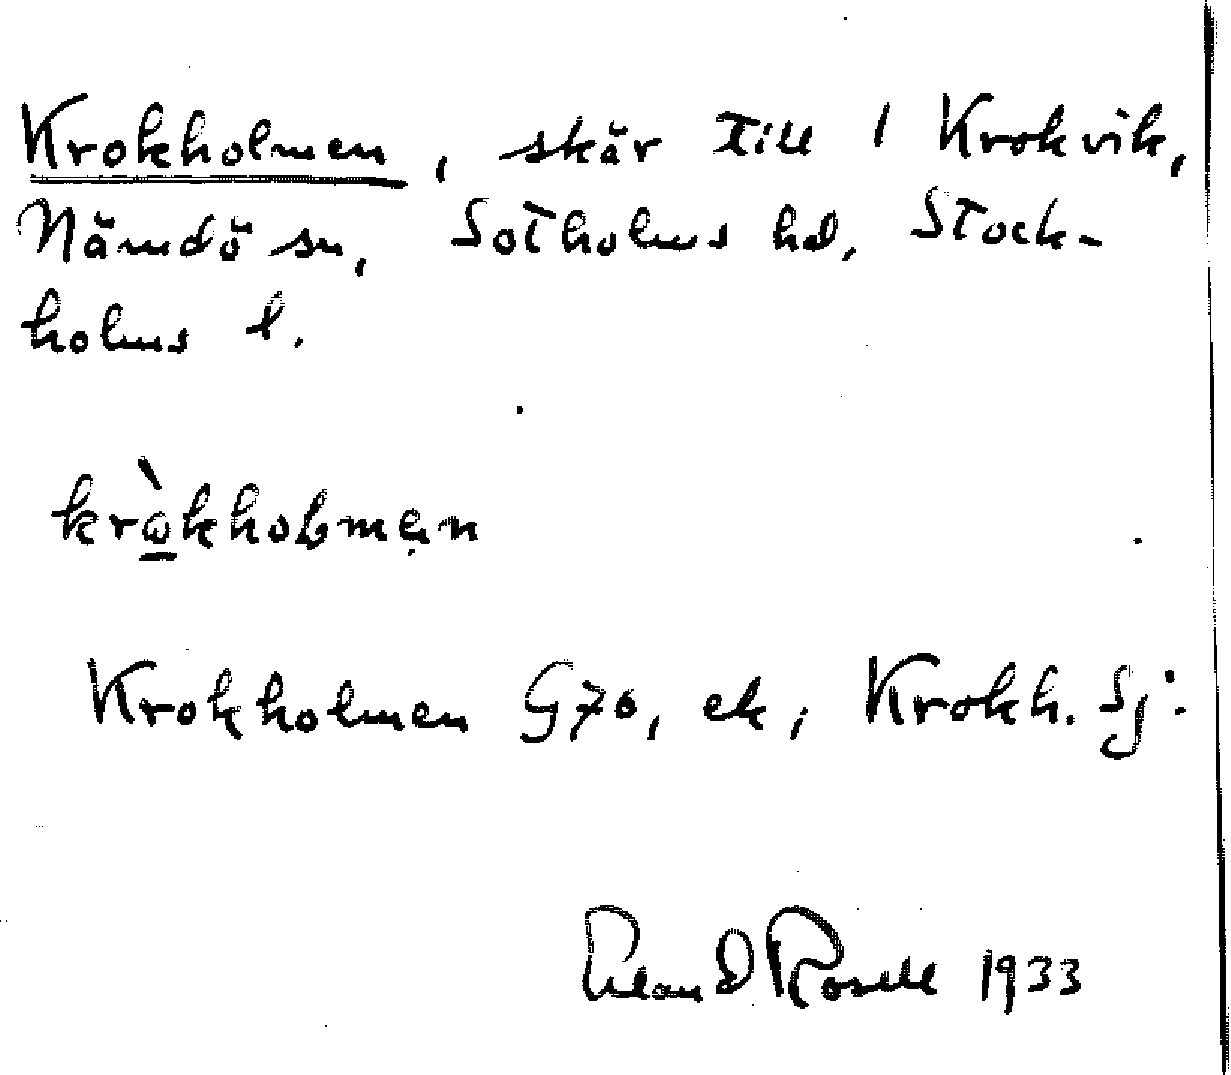 Krokholmen, skär till 1 Krokvik,
Nämdö sn, Sotholms hd, Stock-
holms l.
kròkhoLmęn
Krokholmen G70, ek, Krokh. Sj:
Erland Rosell 1933